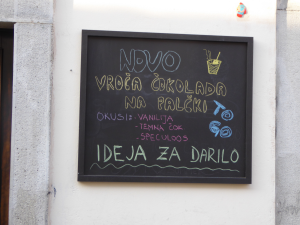 NOVO
VROČA ČOKOLADA
NA PALČKI
TO GO
OKUSI: - VANILIJA
- TEMNA ČOK
- SPECULOOS
IDEJA ZA DARILO